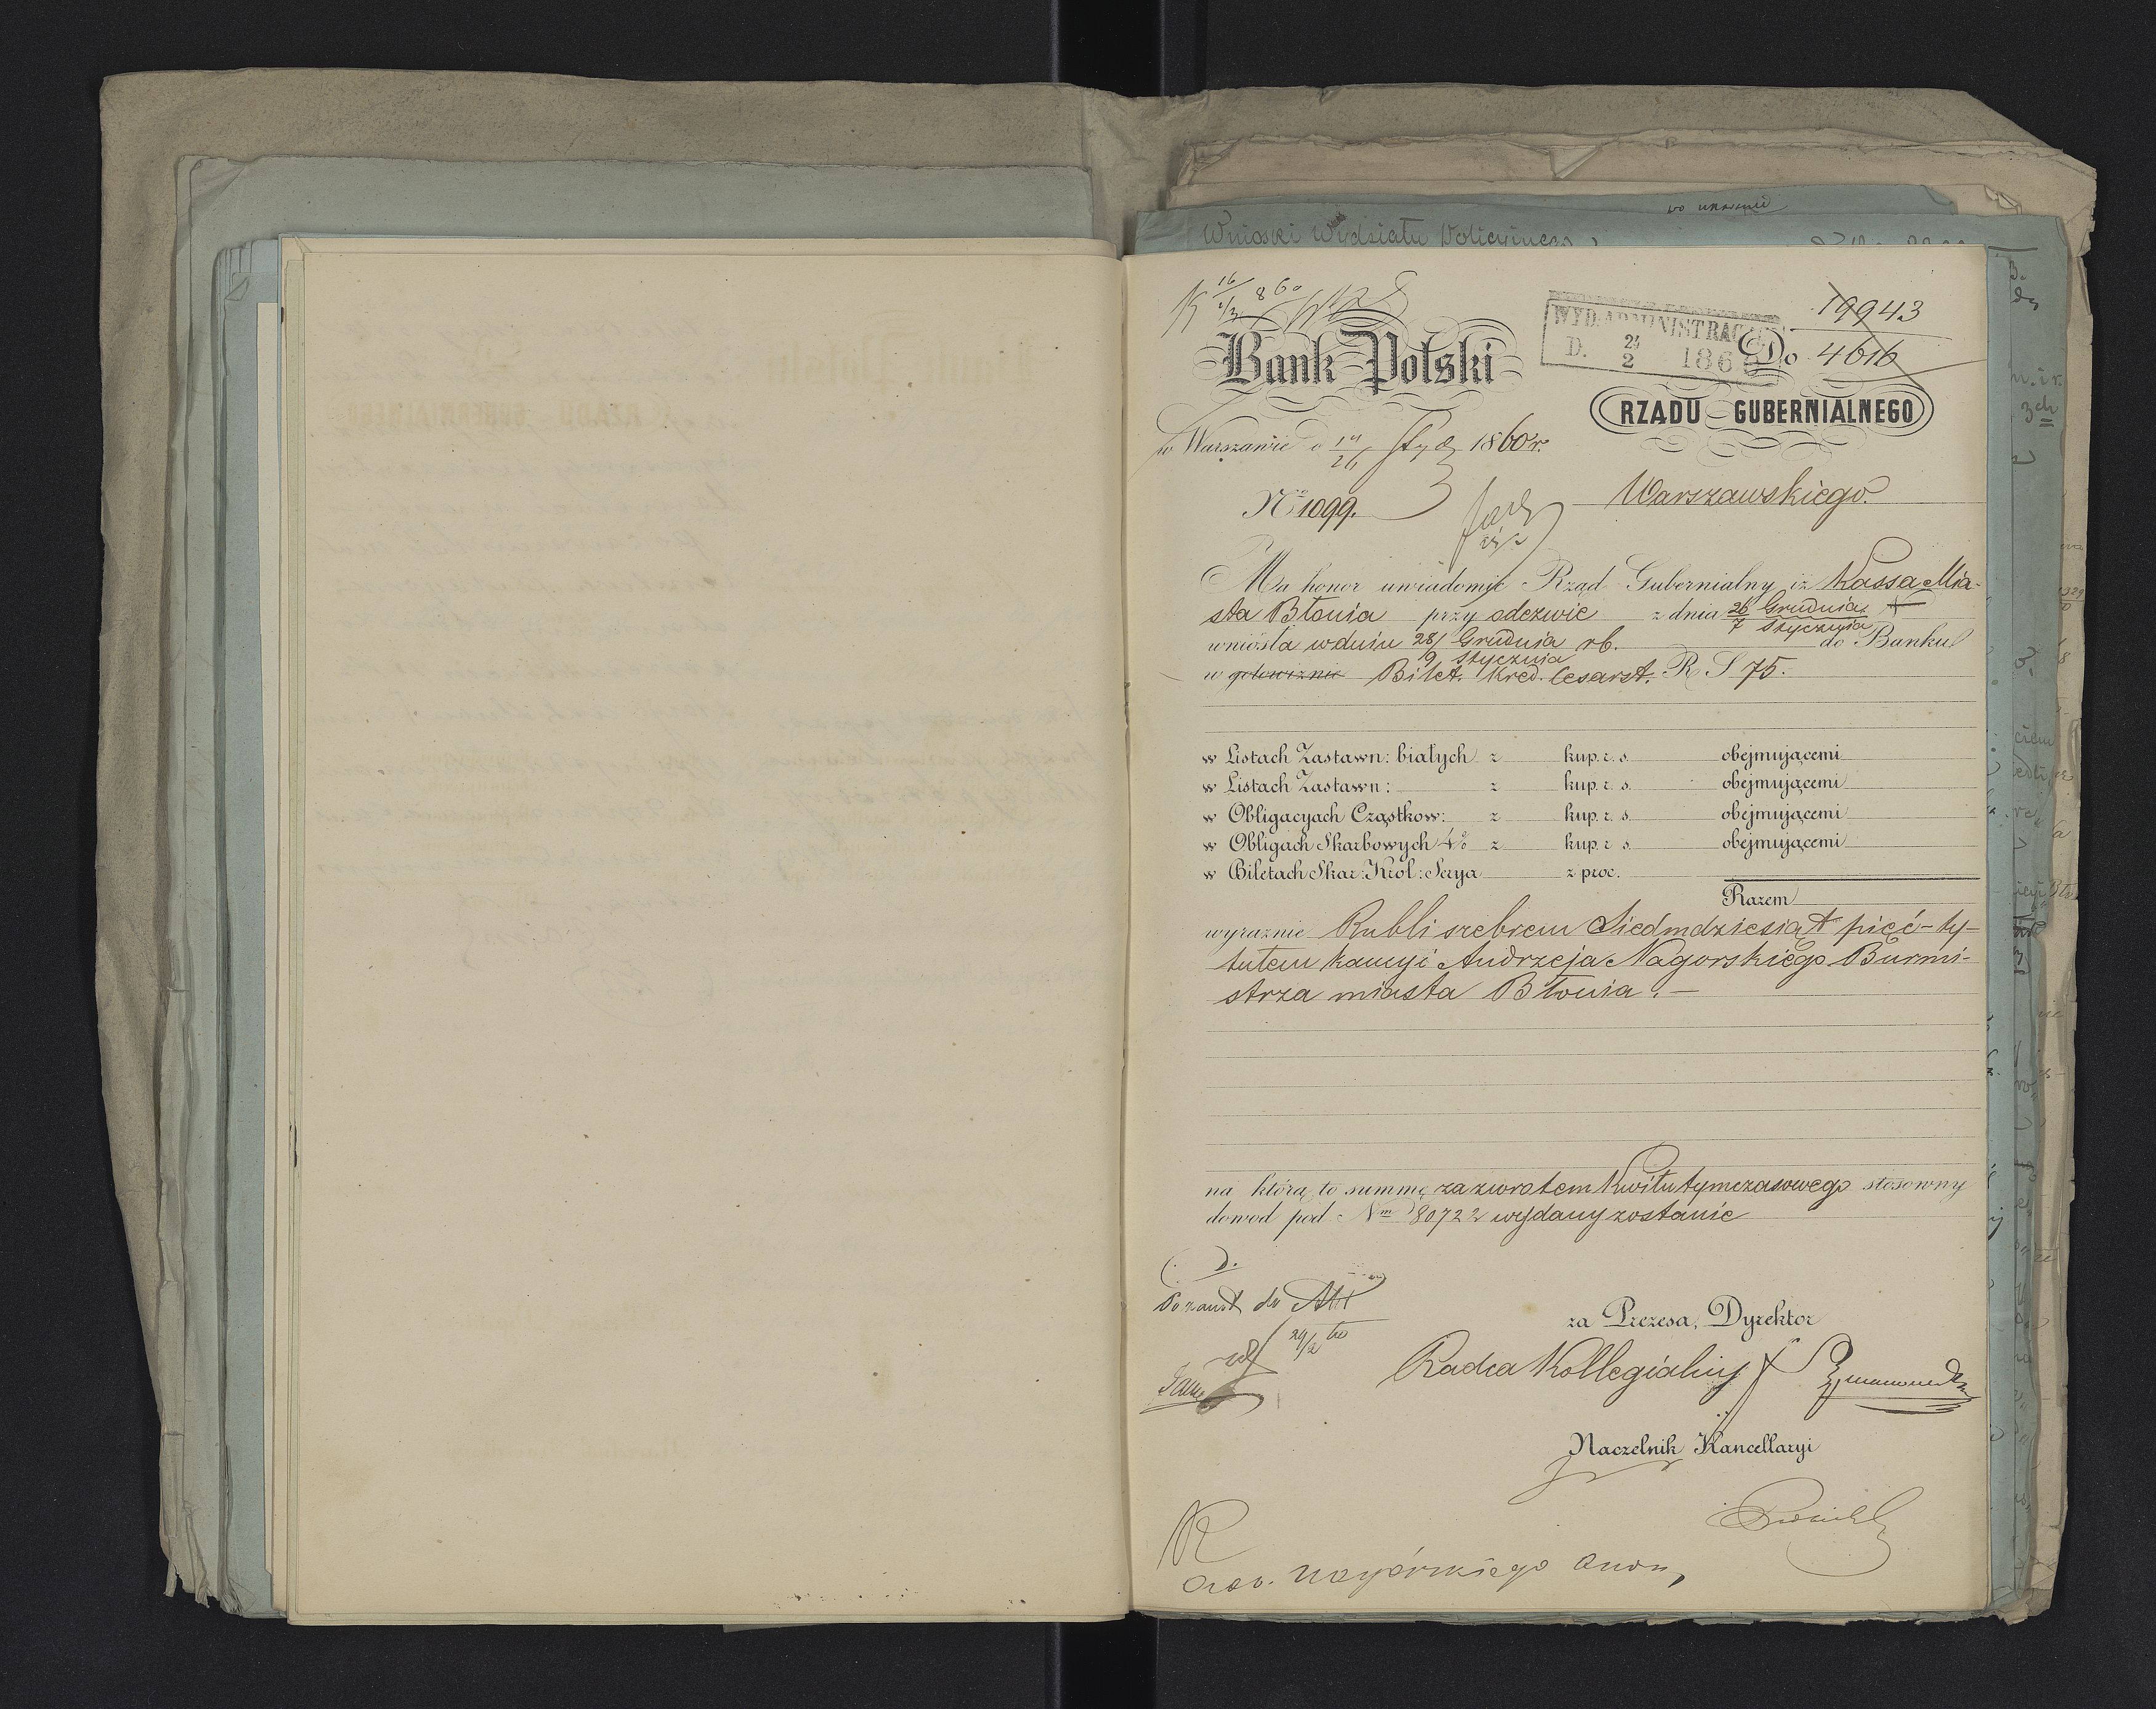 Wnioski Wydziału Policyjnego
16 860
WYD. ADMINISTRACY
D. 24 2 186
19943
Do 4616
Bank Polski
RZĄDU GUBERNIALNEGO
w Warszawie d 14/26 Stycz 1860 r.
Warszawskiego.
No 1099.
Ma honor uwiadomić Rząd Gubernialny iż Kassa Mia-
sta Błonia przy odezwie z dnia 26 Grudnia / 7 Stycznia
wniosła w dniu 28/9 Grudnia/Stycznia rb. do Banku
w gotowiznie Bilet. Kred. Cesarst. R. S 75.
w Listach Zastawn: białych z kup. r. s. obejmującemi
w Listach Zastawn: z kup. r. s. obejmującemi
w Obligacyach Cząstkow: z kup. r. s. obejmującemi
w Obligach Skarbowych 4% z kup. r. s. obejmującemi
w Biletach Skar: Krol: Serya z proc.
Razem
wyraźnie Rubli srebrem Siedmdziesiąt pięć - ty-
tułem kaucyi Andrzeja Nagorskiego Burmi-
strza miasta Błonia. —
na którą to summę za zwrotem Kwitu tymczasowego stosowny
dowod pod Nm 80722 wydany zostanie
do Akt
24/2 60
za Prezesa, Dyrektor
Radca Kollegialny
Naczelnik Kancellaryi
Nagórskiego